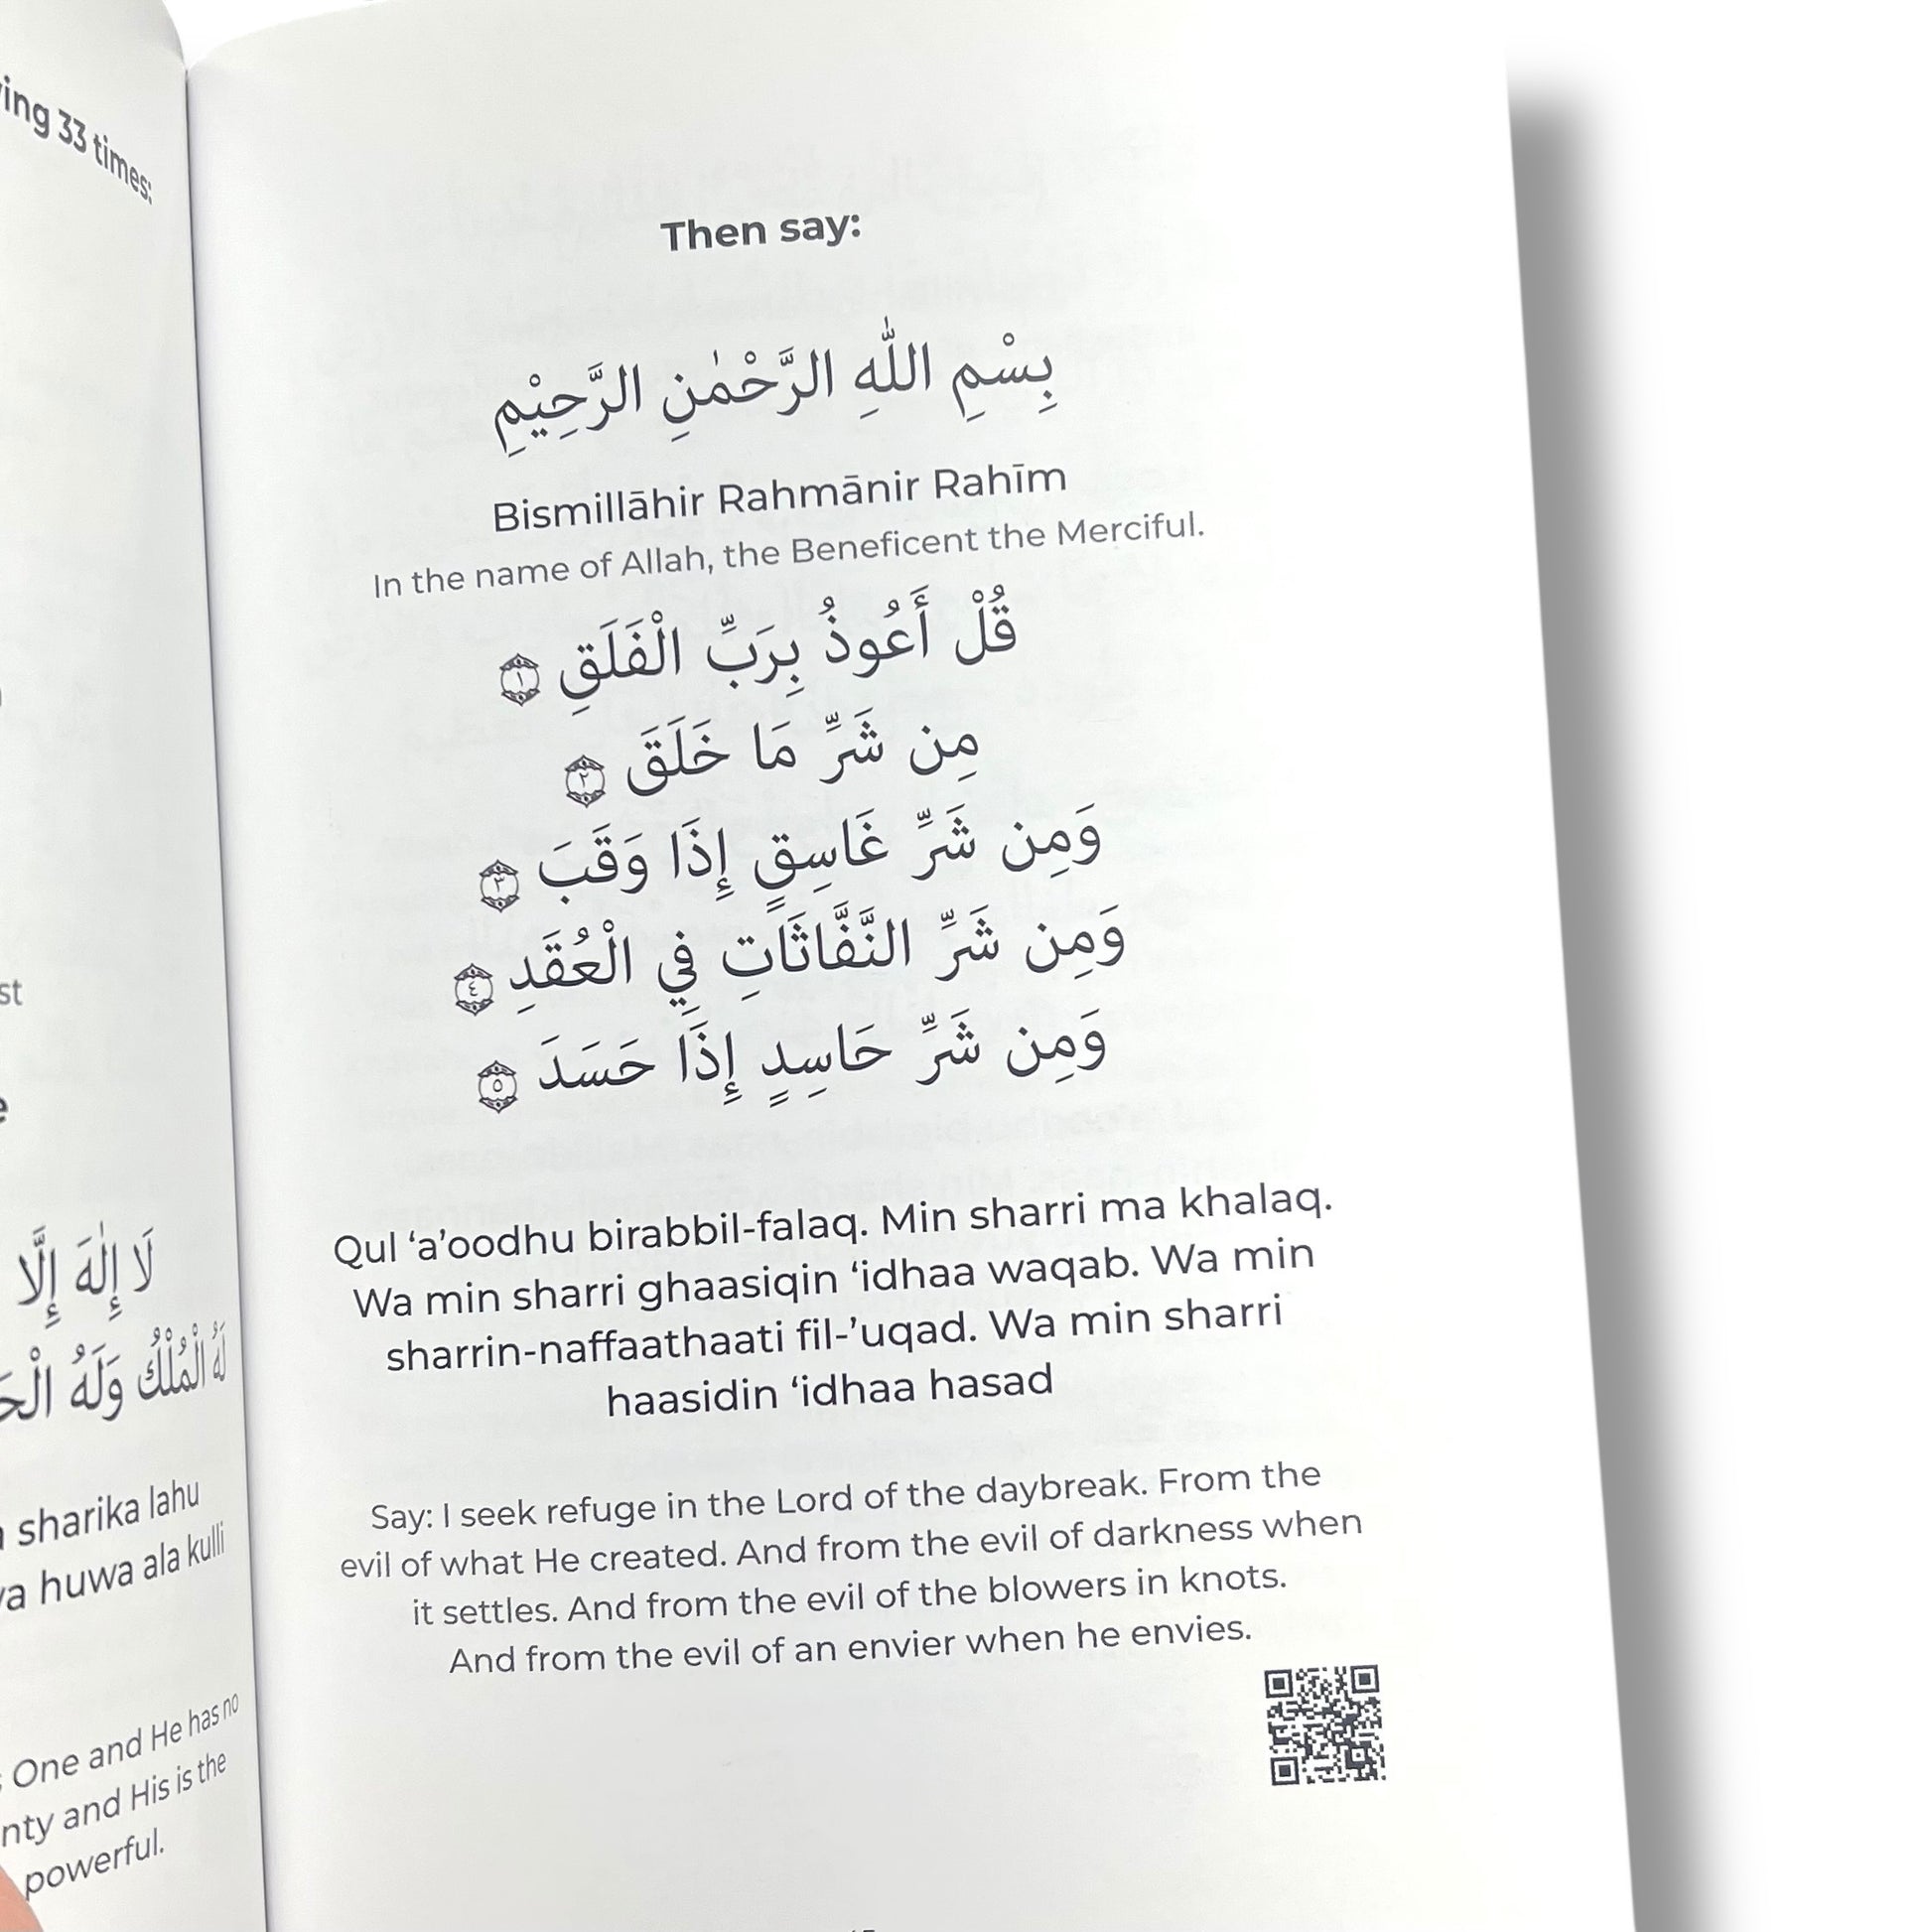 ing 33 times:
st
e
لَا إِلٰهَ إِلَّا
لَهُ الْمُلْكُ وَلَهُ الْحَ
sharika lahu
wa huwa ala kulli
One and He has no
nty and His is the
powerful.
Then say:
بِسْمِ اللّٰهِ الرَّحْمٰنِ الرَّحِيْمِ
Bismillāhir Rahmānir Rahīm
In the name of Allah, the Beneficent the Merciful.
قُلْ أَعُوذُ بِرَبِّ الْفَلَقِ ١
مِن شَرِّ مَا خَلَقَ ٢
وَمِن شَرِّ غَاسِقٍ إِذَا وَقَبَ ٣
وَمِن شَرِّ النَّفَّاثَاتِ فِي الْعُقَدِ ٤
وَمِن شَرِّ حَاسِدٍ إِذَا حَسَدَ ٥
Qul ‘a’oodhu birabbil-falaq. Min sharri ma khalaq.
Wa min sharri ghaasiqin ‘idhaa waqab. Wa min
sharrin-naffaathaati fil-’uqad. Wa min sharri
haasidin ‘idhaa hasad
Say: I seek refuge in the Lord of the daybreak. From the
evil of what He created. And from the evil of darkness when
it settles. And from the evil of the blowers in knots.
And from the evil of an envier when he envies.